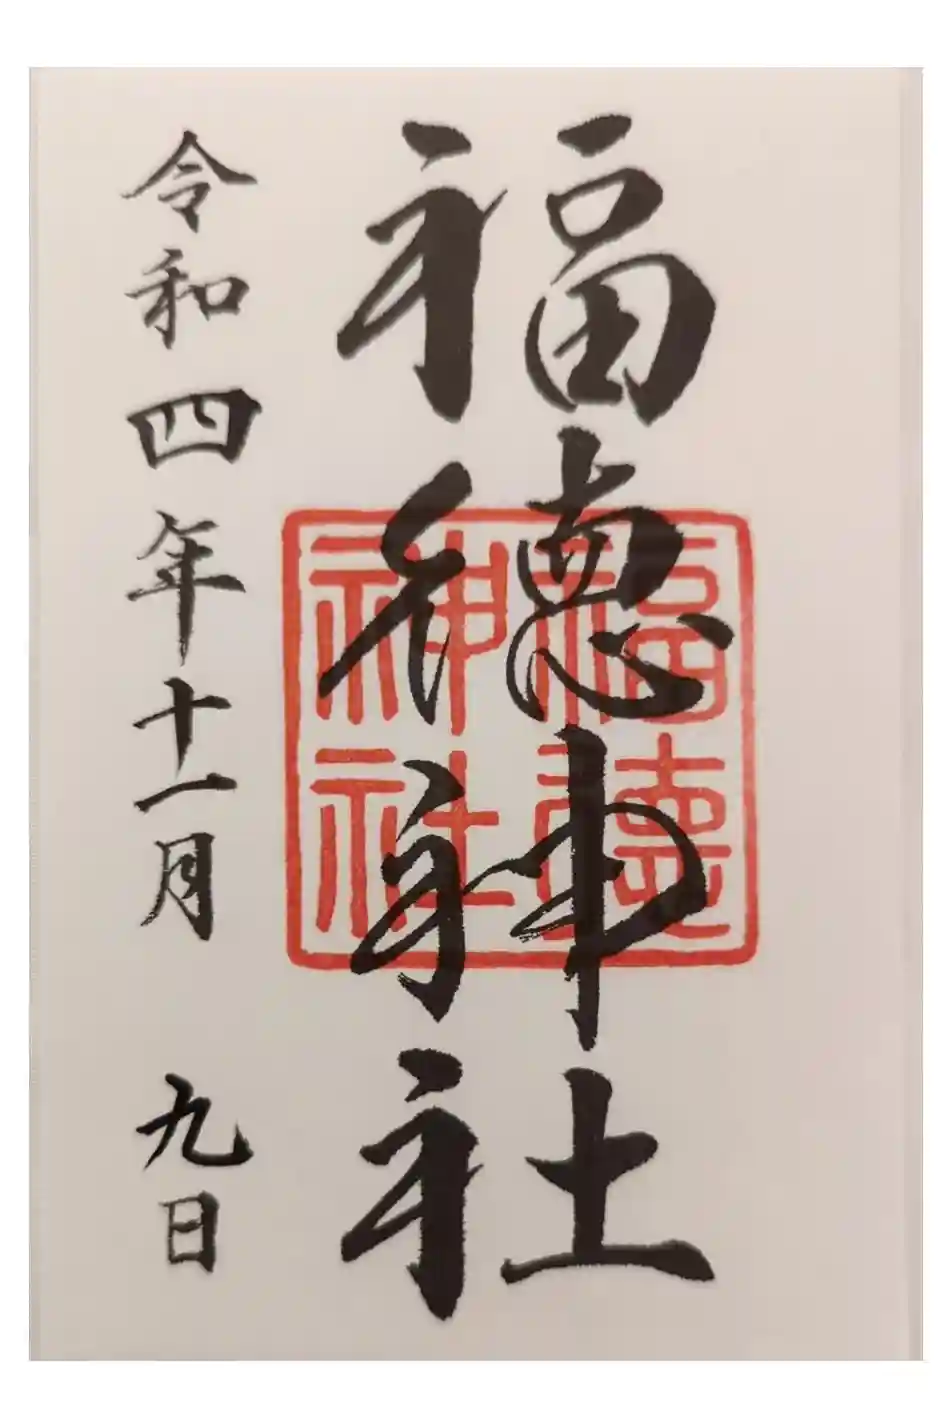 福徳神社
令和四年十一月 九日
福徳
神社